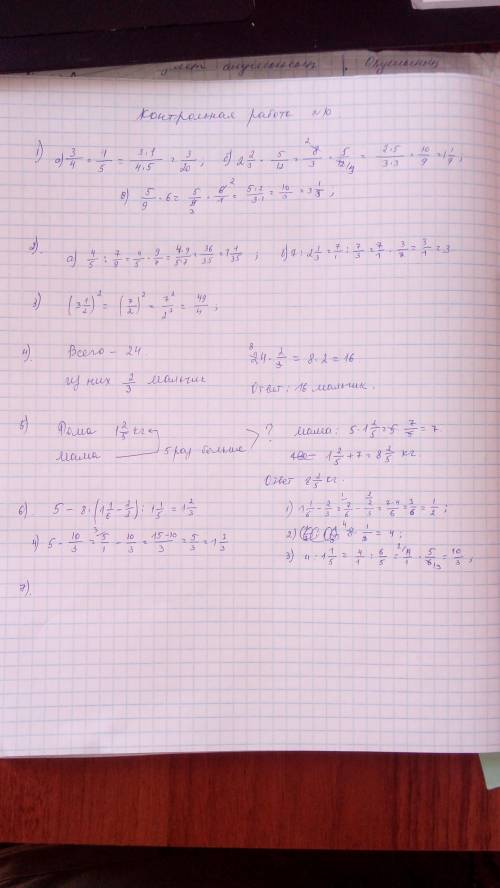 Контрольная работа №10
1) а) 3/4 · 1/5 = 3·1/4·5 = 3/20 ; б) 2 2/3 · 5/12 = 8/3 · 5/12 = 2·5/3·3 = 10/9 = 1 1/9 ;
в) 5/9 · 6 = 5/9 · 6/1 = 5·2/3·1 = 10/3 = 3 1/3 ;
2) а) 4/5 : 7/9 = 4/5 · 9/7 = 4·9/5·7 = 36/35 = 1 1/35 ; б) 7 : 2 1/3 = 7/1 : 7/3 = 7/1 · 3/7 = 3/1 = 3
3) (3 1/2)² = (7/2)² = 7²/2² = 49/4 ;
4) Всего – 24
из них 2/3 мальчик
24 · 2/3 = 8·2 = 16
Ответ: 16 мальчик.
5) Фома 1 2/5 кг
Мама 5 раз больше ?
мама: 5 · 1 2/5 = 5 · 7/5 = 7.
1 2/5 + 7 = 8 2/5 кг.
Ответ 8 2/5 кг.
6) 5 – 8 · (1 1/6 – 2/3) : 1 1/5 = 1 2/3
1) 1 1/6 – 2/3 = 7/6 – 2/3 = 7-4/6 = 3/6 = 1/2 ;
2) 8 · 1/2 = 4 ;
3) 4 : 1 1/5 = 4/1 : 6/5 = 4/1 · 5/6 = 10/3 ;
4) 5 – 10/3 = 5/1 – 10/3 = 15–10/3 = 5/3 = 1 2/3
7)